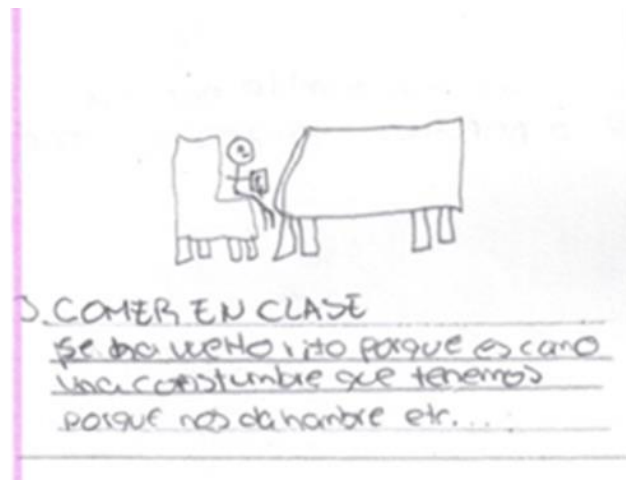 COMER EN CLASE
se ha vuelto rito porque es como
una constumbre que tenemos
porque nos da hambre etc....